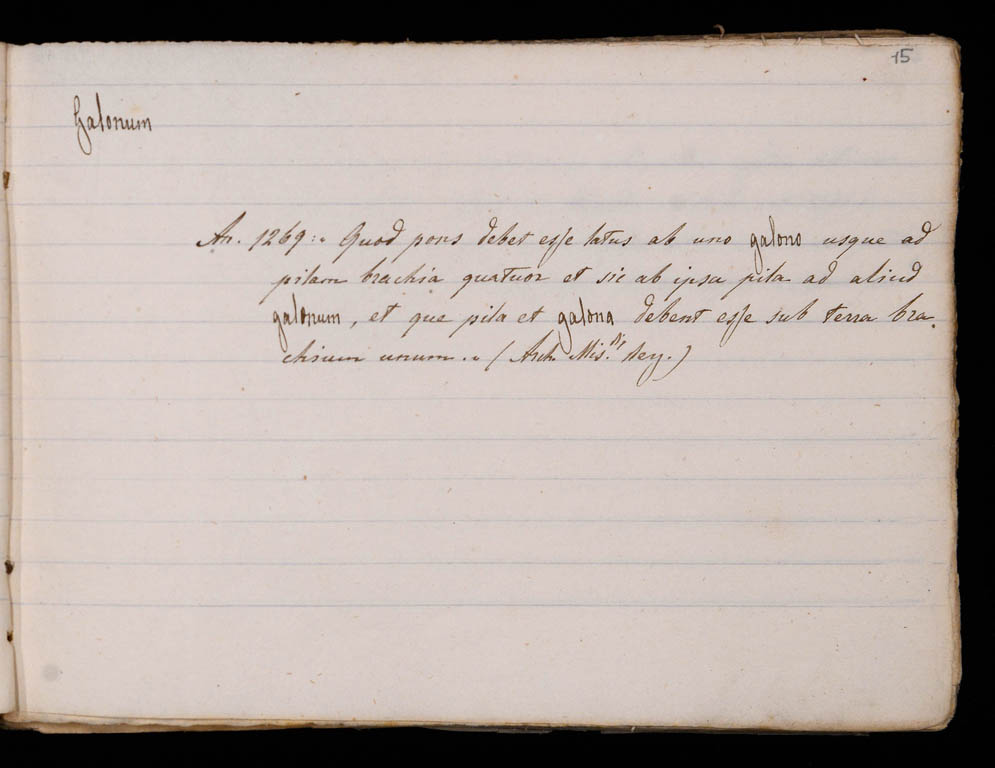 15
Galonum
An. 1269: „ Quod pons debet esse latus ab uno galono usque ad
pilam brachia quatuor et sic ab ipsa pila ad aliud
galonum, et que pila et galona debent esse sub terra bra-
chium unum. „ (Arch. Mis.